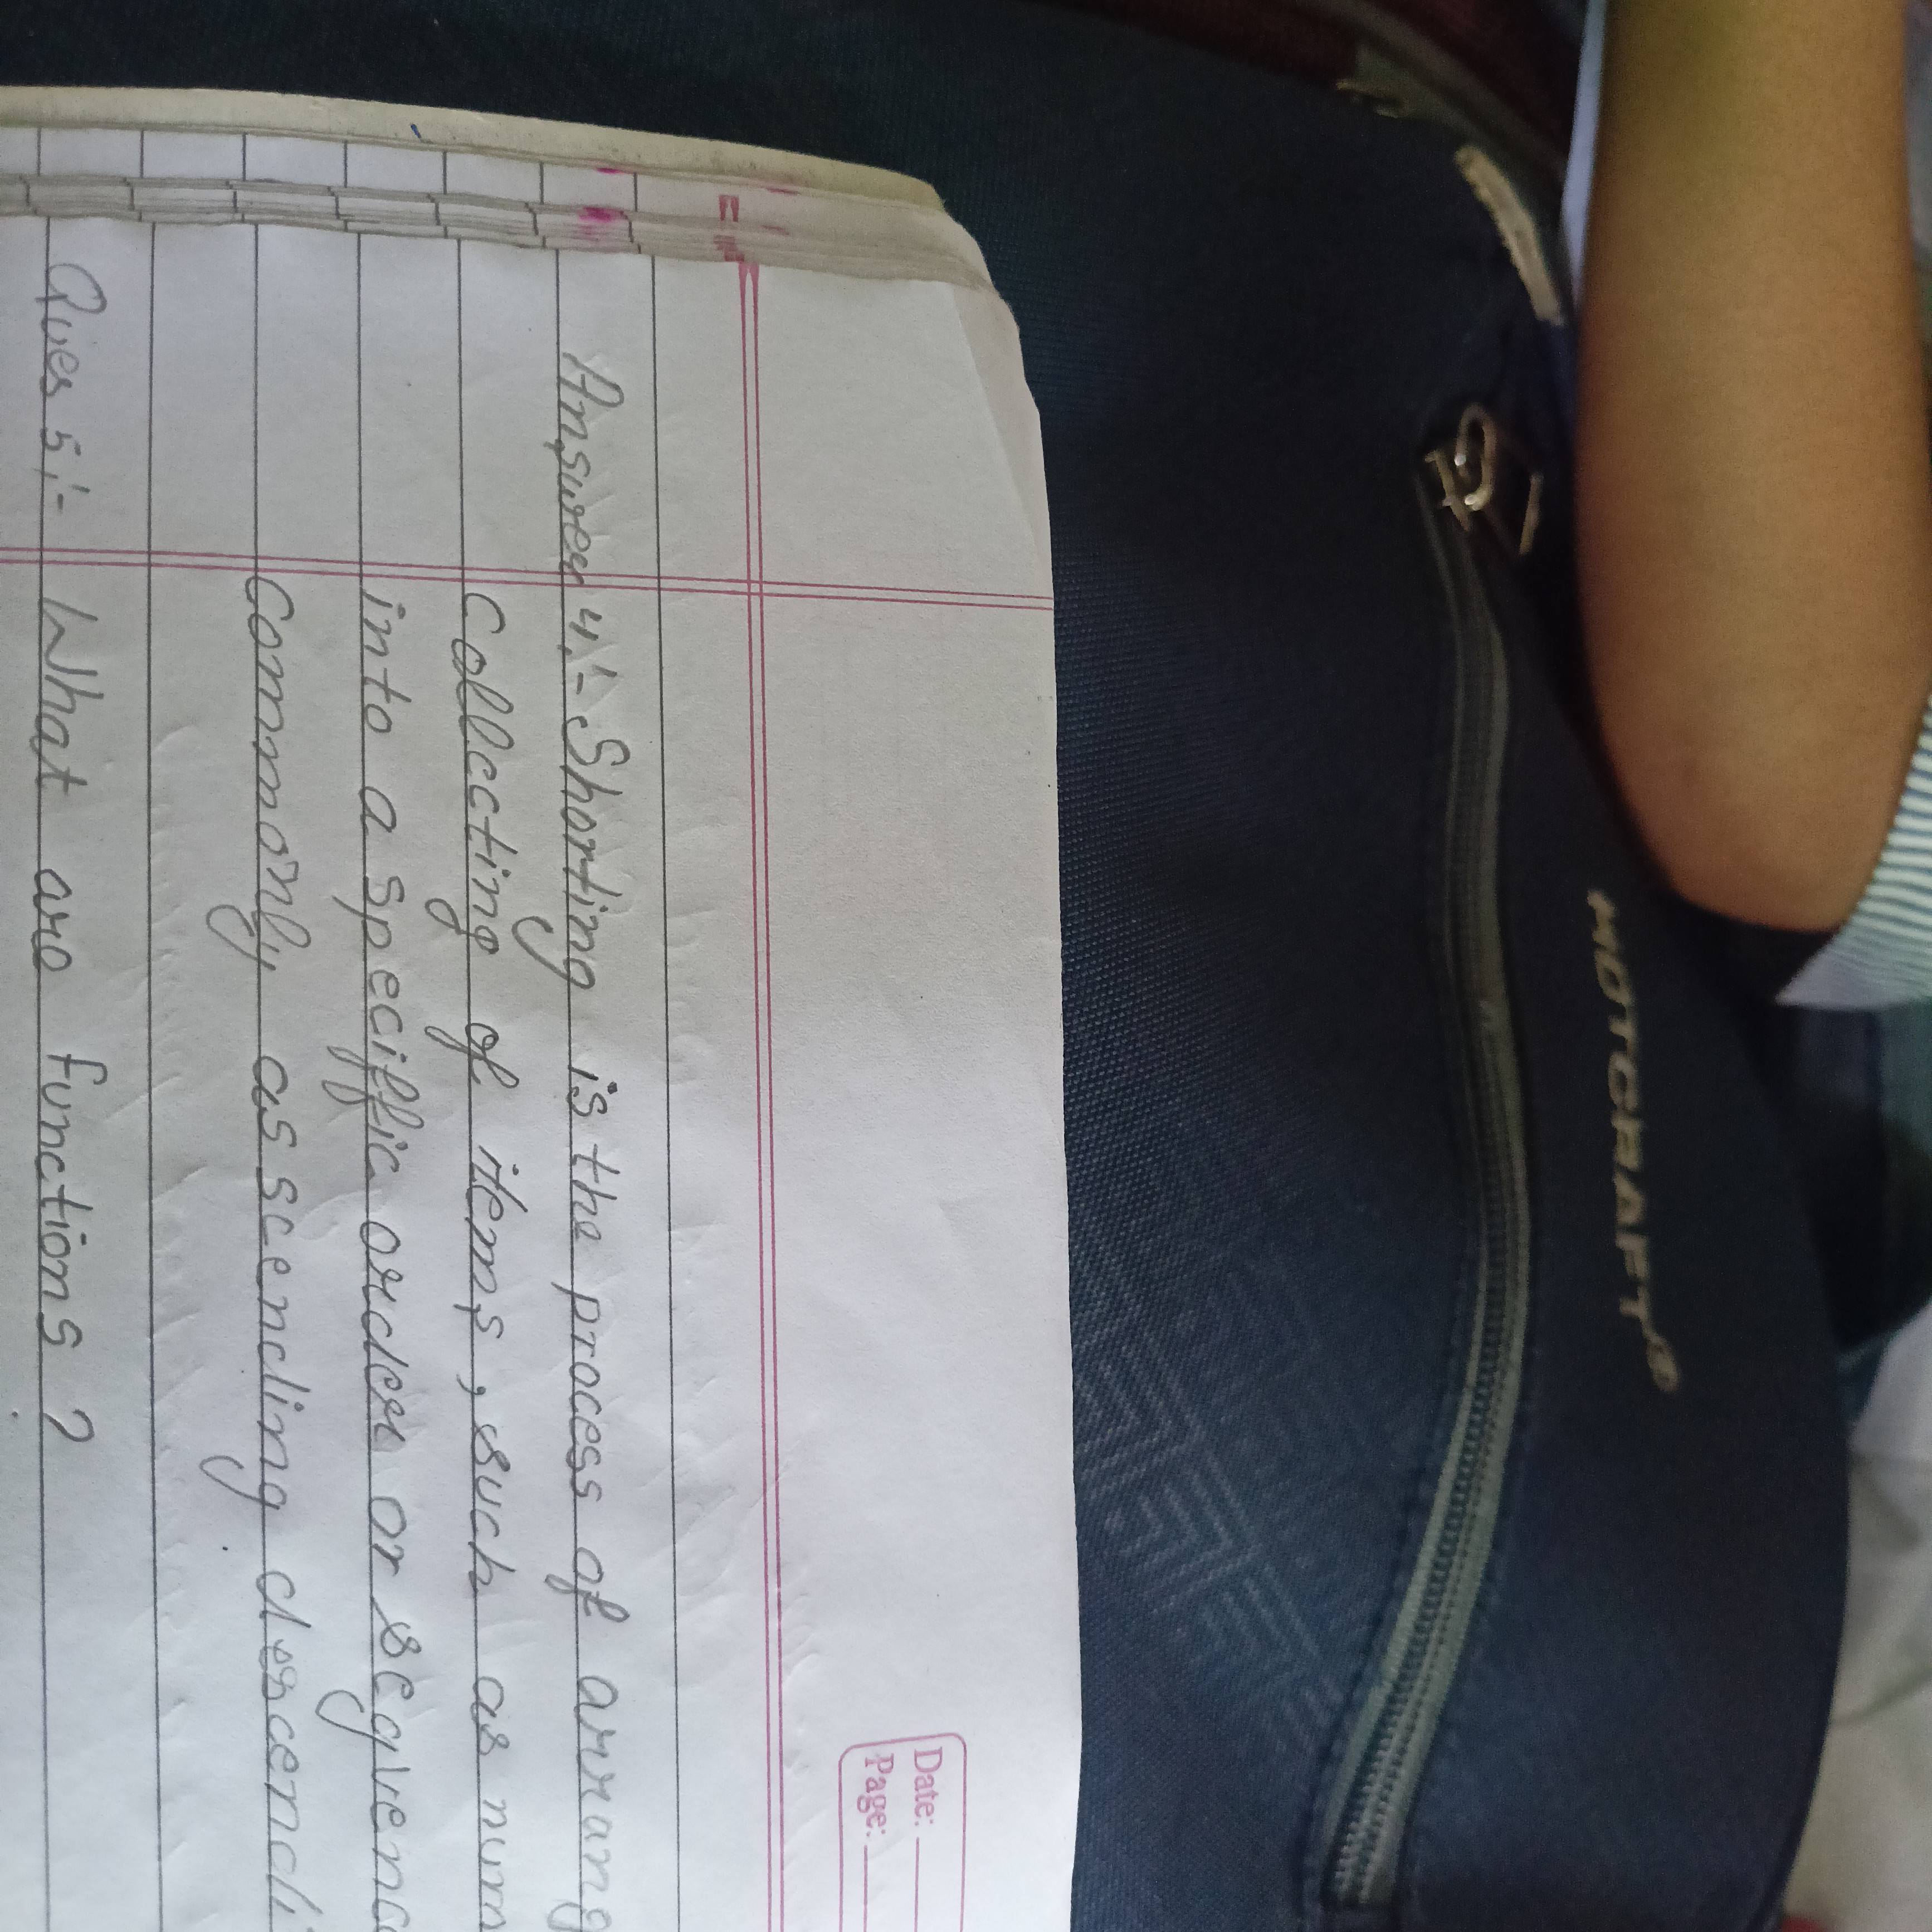 Date:
Page:
Answer 4:- Shorting is the process of arrang
Collecting of items, such as num
into a speciffic order or sequenc
Commonly asscending descendi
Ques 5:- What are functions ?
HOTCRAFT